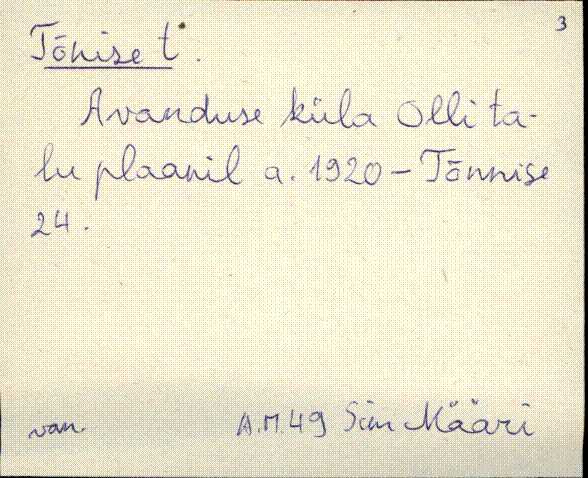 3
Tõnise t.
Avanduse küla Olli ta-
lu plaanil a. 1920 - Tõnnise
24.
van. A.M.49 Sim Määri